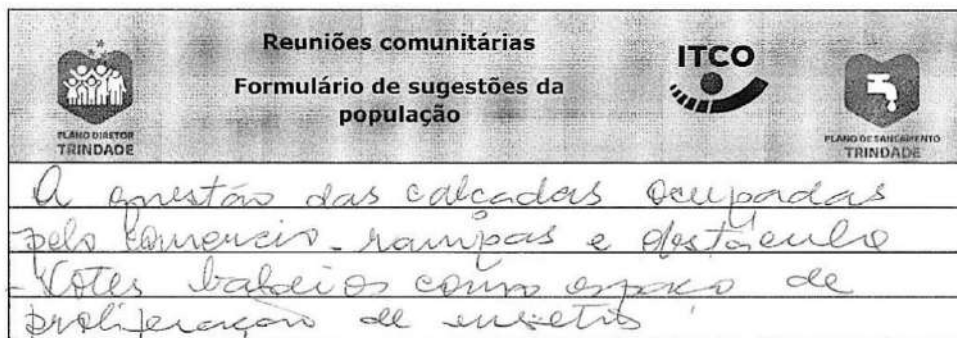 Reuniões comunitárias
Formulário de sugestões da
população
PLANO DIRETOR
TRINDADE
ITCO
PLANO DE SANEAMENTO
TRINDADE
A questão das calçadas ocupadas
pelo comercio - rampas e obstáculo
- Lotes baldios como espaço de
proliferação de insetos